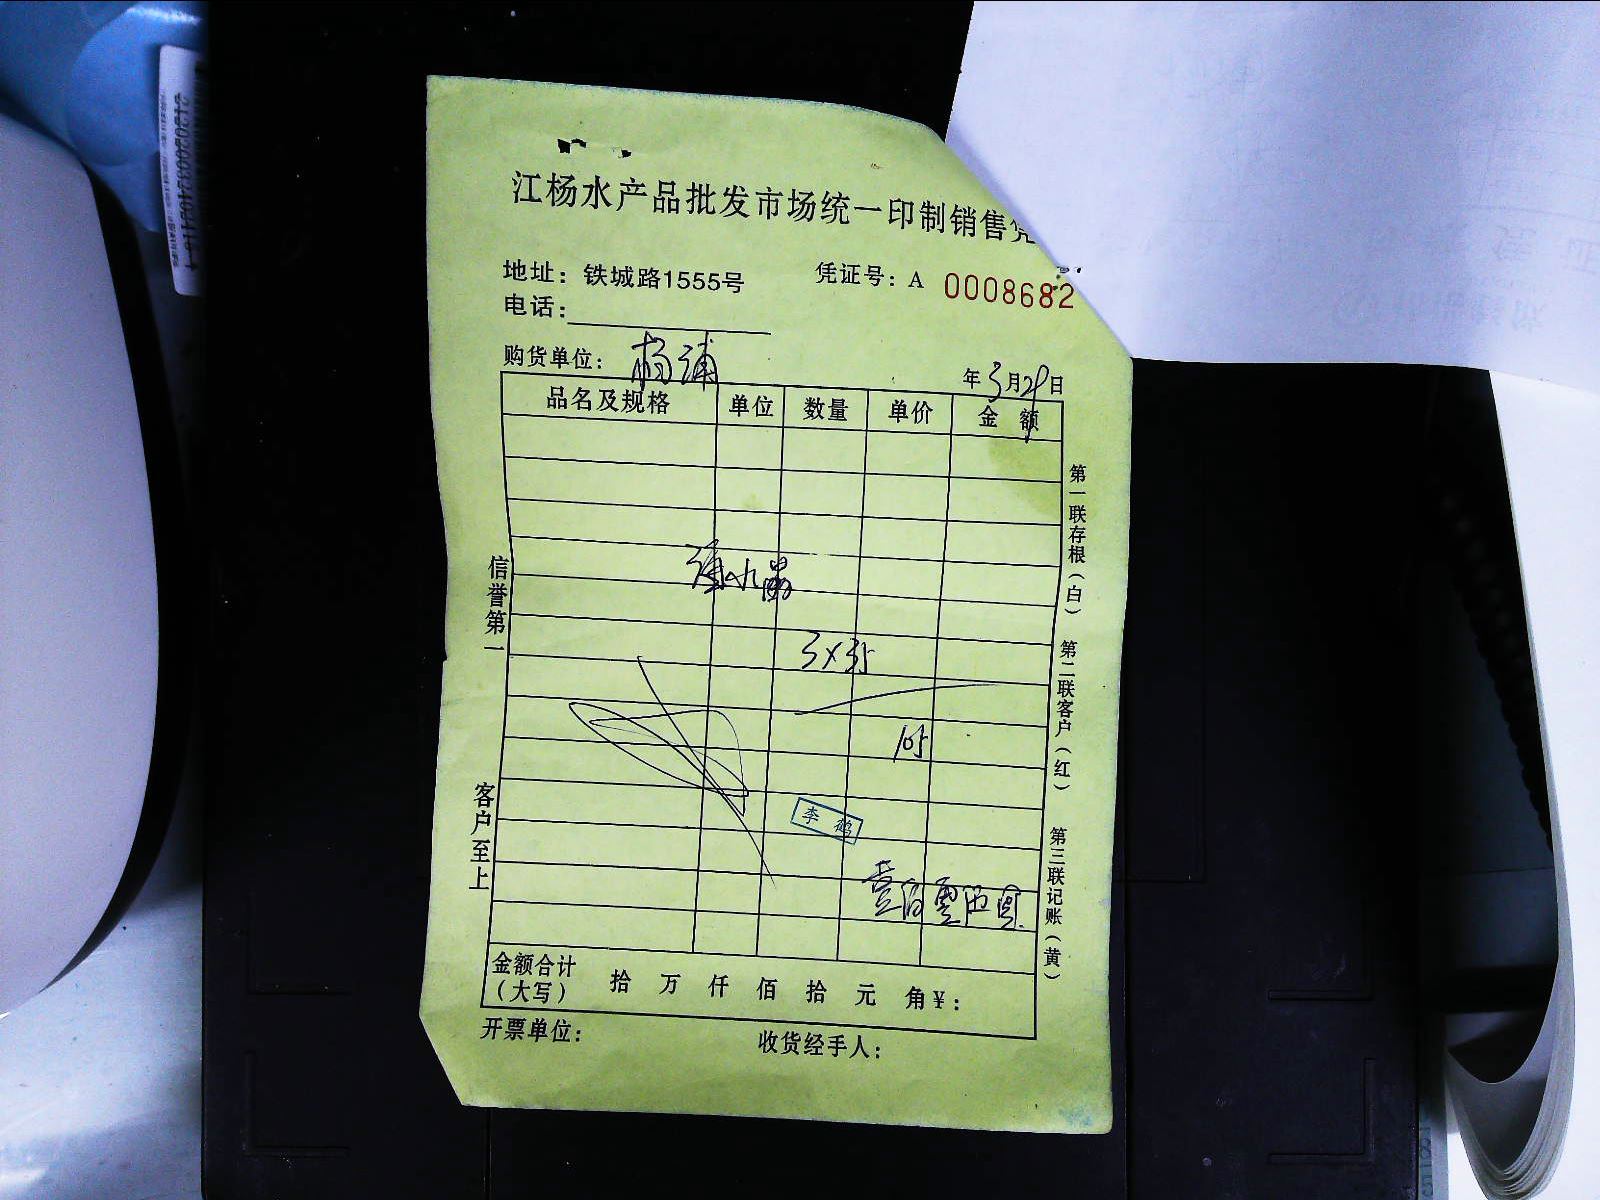 江杨水产品批发市场统一印制销售凭
地址：铁城路1555号
凭证号：A 0008682
电话：
购货单位：杨浦
年3月29日
品名及规格 单位 数量 单价 金额
3×35
105
李鹤
壹佰零伍圆
金额合计（大写） 拾 万 仟 佰 拾 元 角 ¥：
开票单位： 收货经手人：
信誉第一 客户至上
第一联存根（白） 第二联客户（红） 第三联记账（黄）